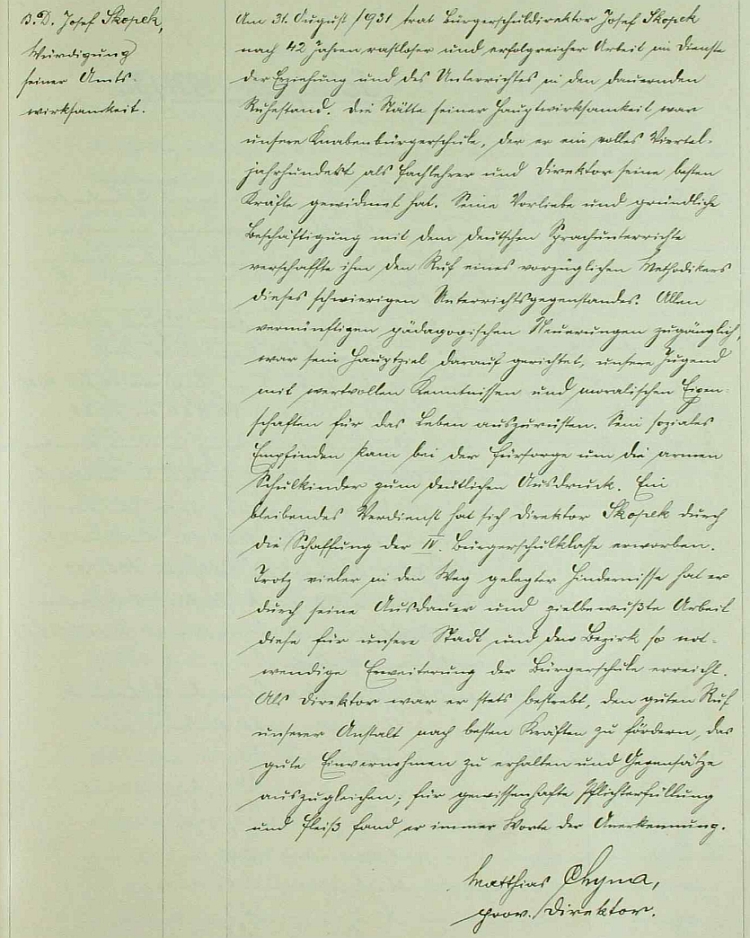 B.D. Josef Skopek,
Würdigung
seiner Amts-
wirksamkeit.
Am 31. August 1931 trat Bürgerschuldirektor Josef Skopek
nach 42 Jahren rastloser und erfolgreicher Arbeit im Dienste
der Erziehung und des Unterrichtes in den dauernden
Ruhestand. Die Stätte seiner Hauptwirksamkeit war
unsere Knabenbürgerschule, der er ein volles Viertel-
jahrhundert als Fachlehrer und Direktor seine besten
Kräfte gewidmet hat. Seine Vorliebe und gründliche
Beschäftigung mit dem deutschen Sprachunterrichte
verschaffte ihm den Ruf eines vorzüglichen Methodikers
dieses schwierigen Unterrichtsgegenstandes. Allen
vernünftigen pädagogischen Neuerungen zugänglich,
war sein Hauptziel darauf gerichtet, unsere Jugend
mit wertvollen Kenntnissen und moralischen Eigen-
schaften für das Leben auszurüsten. Sein soziales
Empfinden kam bei der Fürsorge um die armen
Schulkinder zum deutlichen Ausdruck. Ein
bleibendes Verdienst hat sich Direktor Skopek durch
die Schaffung der IV. Bürgerschulklasse erworben.
Trotz vieler in den Weg gelegter Hindernisse hat er
durch seine Ausdauer und zielbewußte Arbeit
diese für unsere Stadt und den Bezirk so not-
wendige Erweiterung der Bürgerschule erreicht.
Als Direktor war er stets bestrebt, den guten Ruf
unserer Anstalt nach besten Kräften zu fördern, das
gute Einvernehmen zu erhalten und Gegensätze
auszugleichen; für gewissenhafte Pflichterfüllung
und Fleiß fand er immer Worte der Anerkennung.
Matthias Chyna,
prov. Direktor.